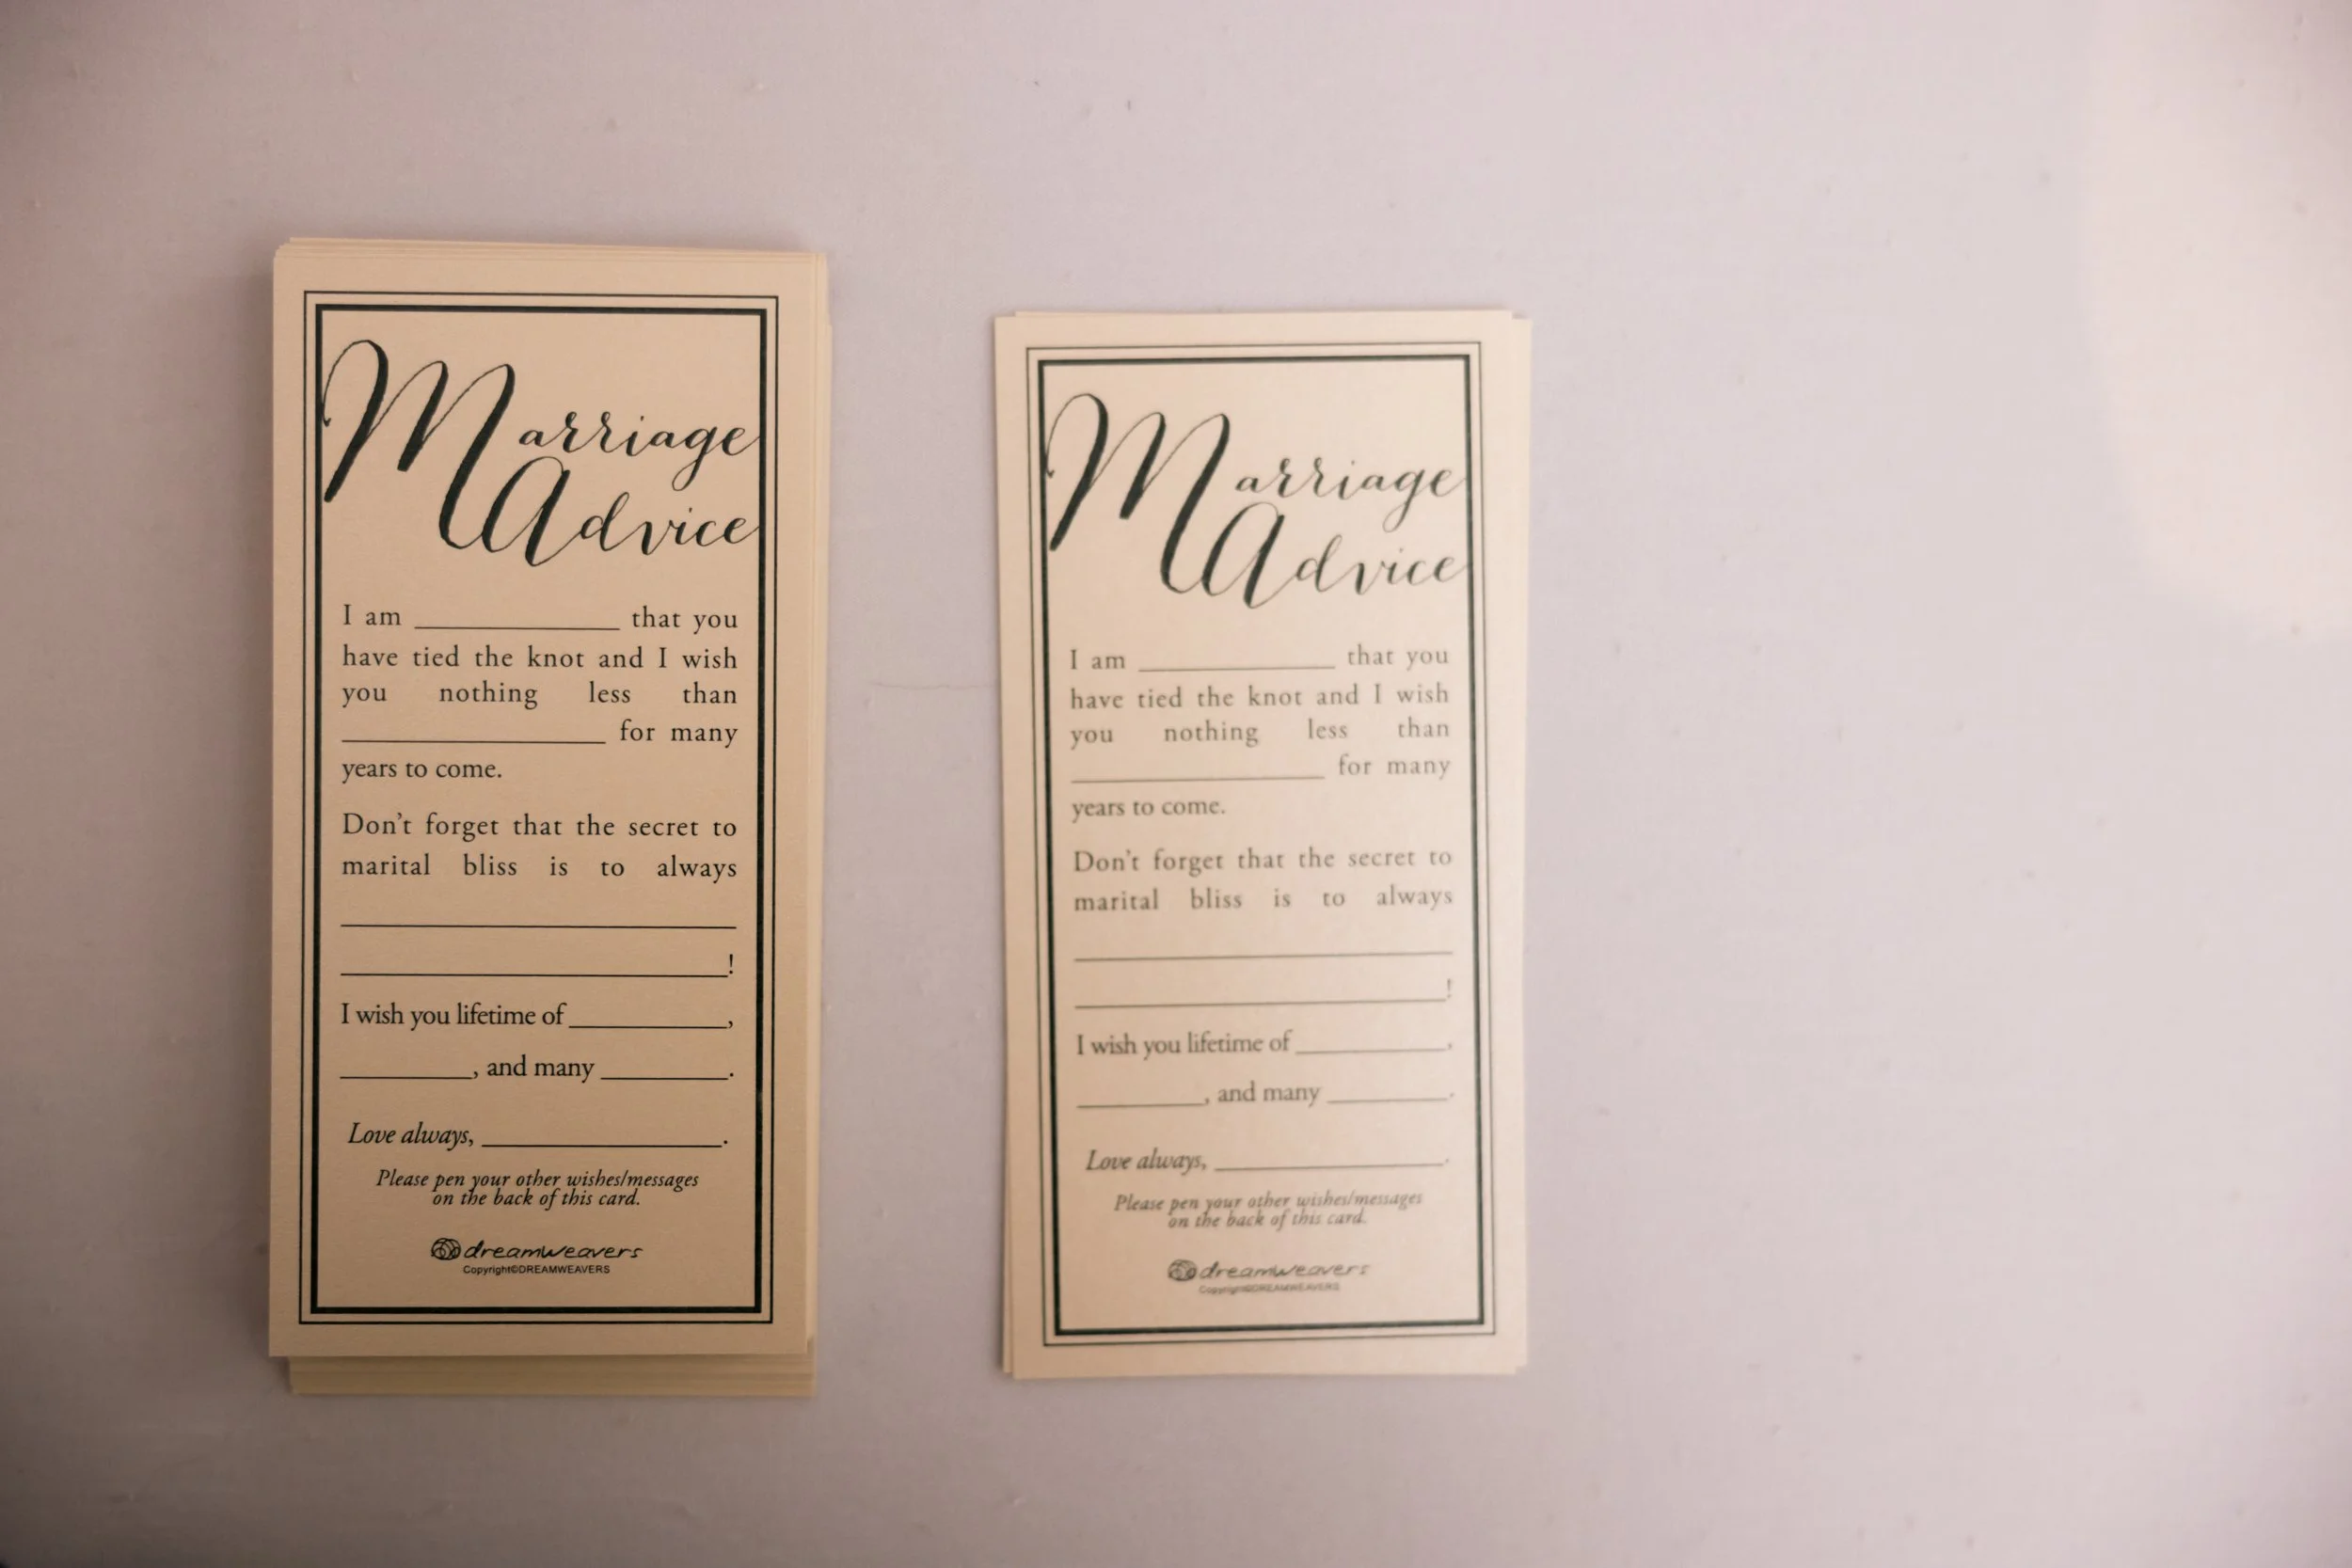 Marriage
Advice
I am ______________ that you
have tied the knot and I wish
you nothing less than
__________________ for many
years to come.
Don't forget that the secret to
marital bliss is to always
___________________________
__________________________!
I wish you lifetime of ___________,
_________, and many _________.
Love always, _________________.
Please pen your other wishes/messages
on the back of this card.
dreamweavers
Copyright©DREAMWEAVERS
Marriage
Advice
I am ______________ that you
have tied the knot and I wish
you nothing less than
__________________ for many
years to come.
Don't forget that the secret to
marital bliss is to always
___________________________
__________________________!
I wish you lifetime of ___________,
_________, and many _________.
Love always, _________________.
Please pen your other wishes/messages
on the back of this card.
dreamweavers
Copyright©DREAMWEAVERS